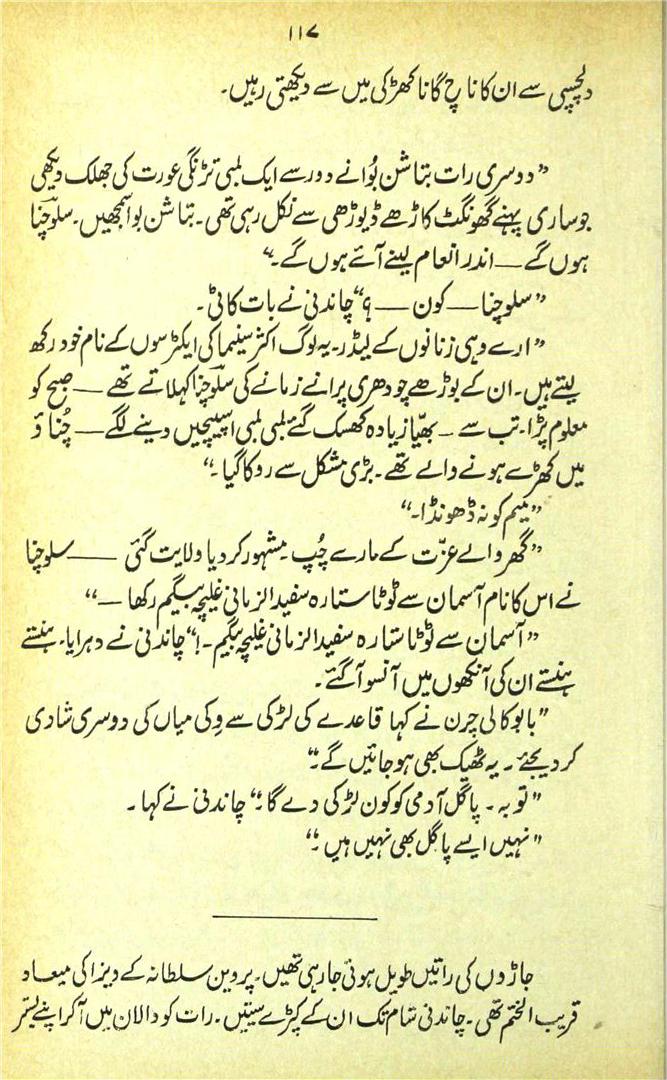 ۱۱۷
دلچسپی سے ان کا ناچ گانا کھڑکی میں سے دیکھتی رہیں۔
”دوسری رات بتاشن بُوا نے دور سے ایک لمبی تڑنگی عورت کی جھلک دیکھی
جو ساری پہنے گھونگٹ کاڑھے ڈیوڑھی سے نکل رہی تھی۔ بتاشن بوا سمجھیں۔ سلوچنا
ہوں گے — اندر انعام لینے آئے ہوں گے۔“
”سلوچنا — کون — ؟“ چاندنی نے بات کاٹی۔
”ارے وہی زنانوں کے لیڈر۔ یہ لوگ اکثر سنیما کی ایکٹرسوں کے نام خود رکھ
لیتے ہیں۔ ان کے بوڑھے چودھری پرانے زمانے کی سلوچنا کہلاتے تھے — صبح کو
معلوم پڑا۔ تب سے — بھیّا زیادہ کھسک گئے لمبی لمبی اسپیچیں دینے لگے — چُناؤ
میں کھڑے ہونے والے تھے۔ بڑی مشکل سے روکا گیا۔“
”میم کو نہ ڈھونڈا۔“
”گھر والے عزّت کے مارے چُپ۔ مشہور کر دیا ولایت گئی — سلوچنا
نے اس کا نام آسمان سے ٹوٹا ستارہ سفید الزمانی غلیچہ بیگم رکھا —“
”آسمان سے ٹوٹا ستارہ سفید الزمانی غلیچہ بیگم۔!“ چاندنی نے دہرایا۔ ہنستے
ہنستے ان کی آنکھوں میں آنسو آ گئے۔
”بابو کالی چرن نے کہا قاعدے کی لڑکی سے وِکی میاں کی دوسری شادی
کر دیجئے۔ یہ ٹھیک بھی ہو جائیں گے۔“
”توبہ۔ پاگل آدمی کو کون لڑکی دے گا۔“ چاندنی نے کہا۔
”نہیں ایسے پاگل بھی نہیں ہیں۔“
جاڑوں کی راتیں طویل ہوتی جا رہی تھیں۔ پروین سلطانہ کے ویزا کی میعاد
قریب الختم تھی۔ چاندنی شام تک ان کے کپڑے سیتیں۔ رات کو دالان میں آ کر اپنے بستر